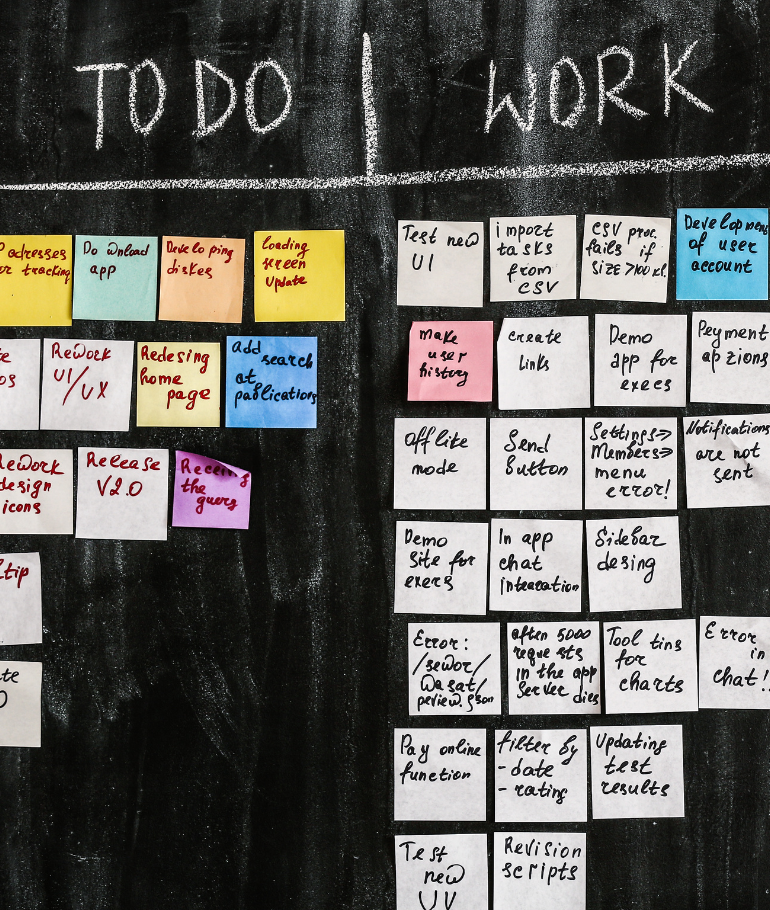 TODO
WORK
adresses
tracking
Download
app
Developing
diskes
loading
screen
update
Rework
UI/UX
Redesing
home
page
add
search
at
Rework
design
icons
Release
V2.0
the
tip
Test new
UI
import
tasks
from
CSV
CSV proc.
fails if
size >100
Development
of user
account
make
user
history
create
links
Demo
app for
execs
Peyment
apzions
Offlike
mode
Send
button
Settings⇒
Members⇒
menu
error!
Notifications
are not
sent
Demo
site for
In app
chat
Sidebar
desing
Error:
after 5000
requests
in the app
server dies
Tool
for
charts
Error
in
chat!!
Pay online
function
filter by
- date
- rating
Updating
test
results
Test
new
UV
Revision
scripts